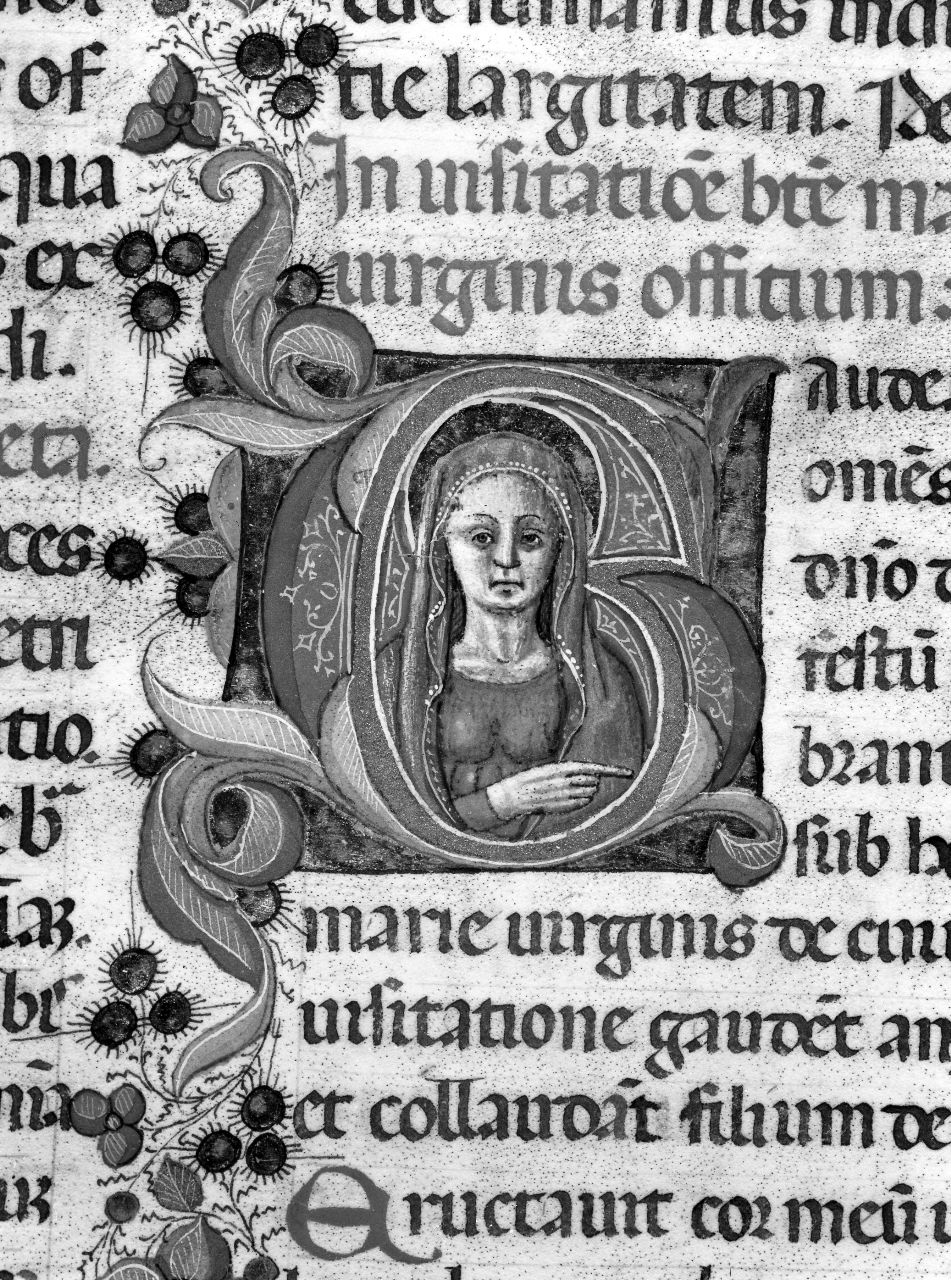 of
qua
ex
di.
eta.
ces
etri
tio.
tie largitatem.
In uisitatiōe btē ma
uirginis offitium.
GAude
omēs
dño d
festū
brant
sub h
marie uirginis de cuiu
uisitatione gaudēt an
et collaudāt filium de
Eructauit cor meū